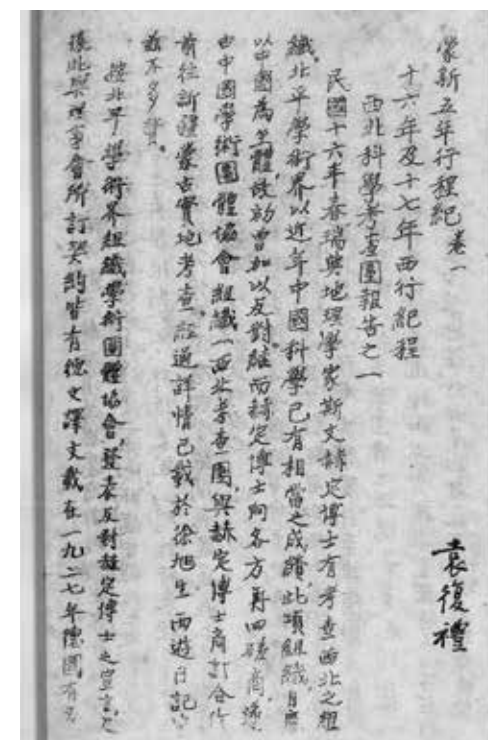 蒙新五年行程紀 卷一
袁復禮
十六年及十七年西行紀程
西北科學考查團報告之一
民國十六年春瑞典地理學家斯文赫定博士有考查西北之組
織,北平學術界以近年中國科學已有相當之成績,此項組織自應
以中國為主體,故初曾加以反對。而赫定博士向各方再四磋商,遂
由中國學術團體協會組織一西北考查團,與赫定博士商訂合作
前往新疆蒙古實地考查,經過詳情已載於徐旭生西遊日記
茲不多贅。
北平學術界組織學術團體協會,發表反對赫定博士之宣言,及
後此與理事會所訂契約皆有德文譯文載在一九二七年德國有名